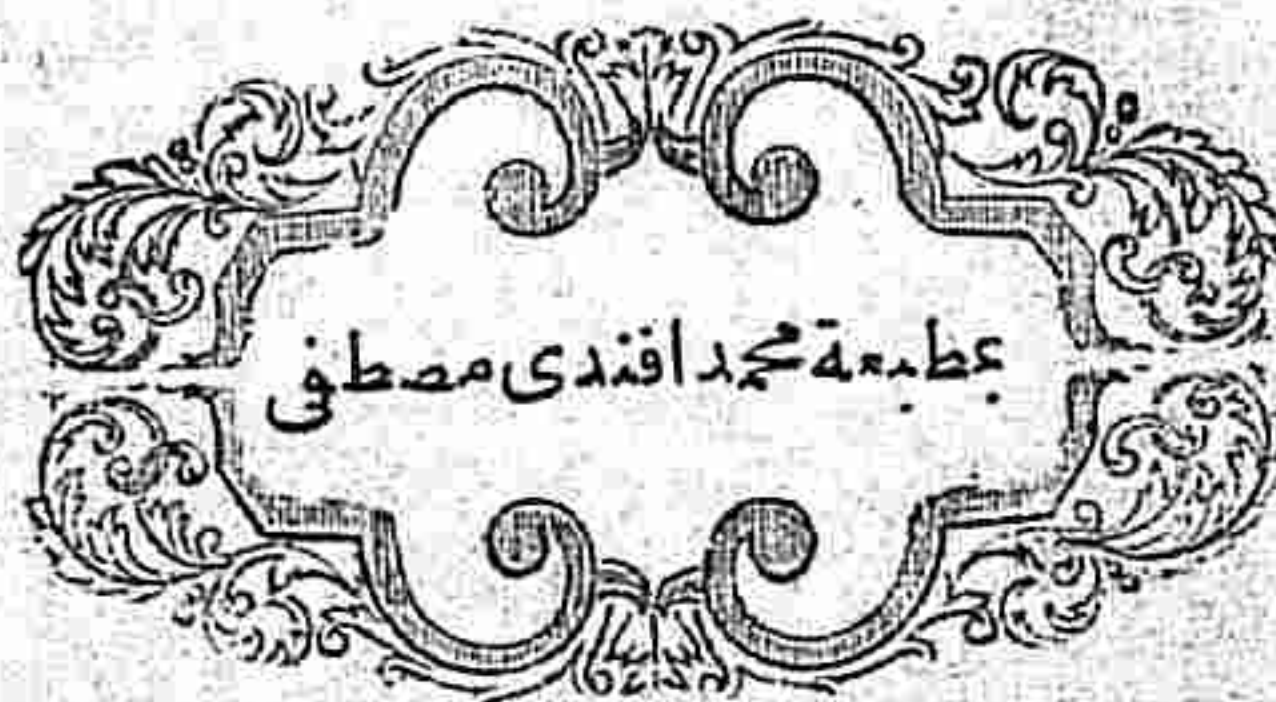 بمطبعة محمد افندى مصطفى